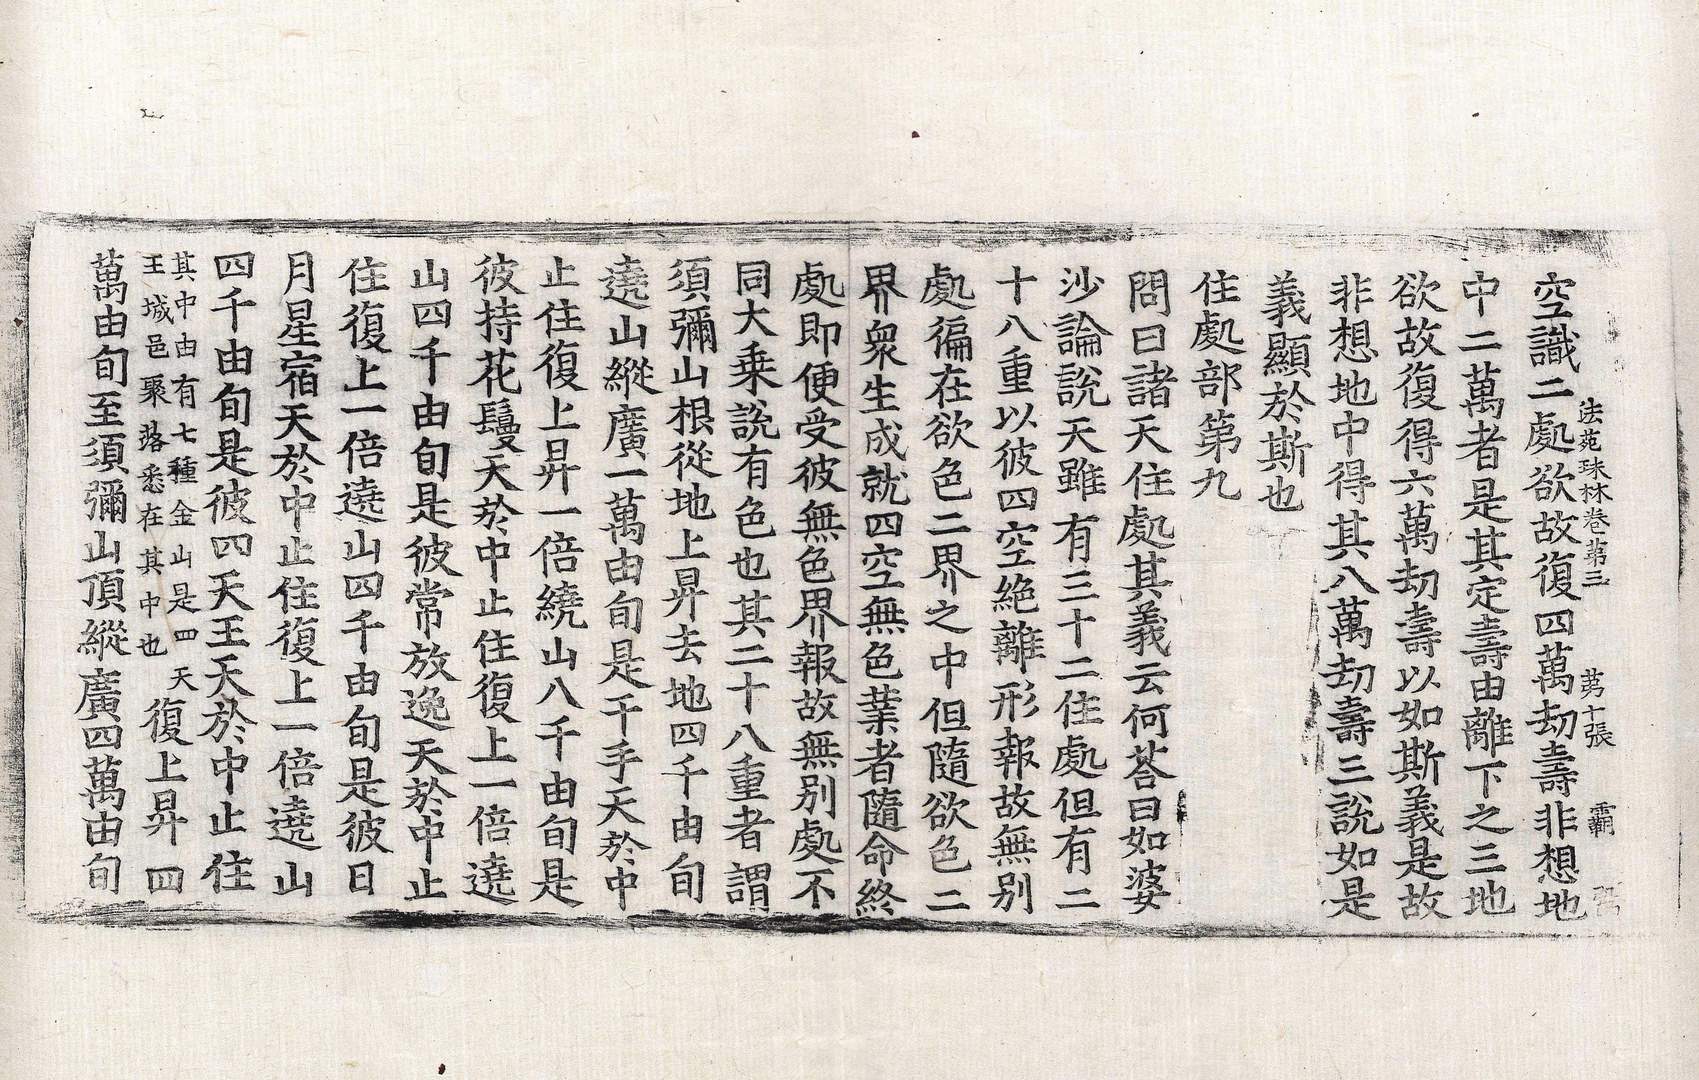 法苑珠林卷第三 苐十張 霸
空識二處欲故復四萬劫壽非想地
中二萬者是其定壽由離下之三地
欲故復得六萬劫壽以如斯義是故
非想地中得其八萬劫壽三說如是
義顯於斯也
住處部第九
問曰諸天住處其義云何荅曰如婆
沙論說天雖有三十二住處但有二
十八重以彼四空絶離形報故無別
處徧在欲色二界之中但隨欲色二
界衆生成就四空無色業者隨命終
處即便受彼無色界報故無別處不
同大乗說有色也其二十八重者謂
須彌山根從地上昇去地四千由旬
遶山縱廣一萬由旬是千手天於中
止住復上昇一倍繞山八千由旬是
彼持花鬘天於中止住復上一倍遶
山四千由旬是彼常放逸天於中止
住復上一倍遶山四千由旬是彼日
月星宿天於中止住復上一倍遶山
四千由旬是彼四天王天於中止住
其中由有七種金山是四天
王城邑聚落悉在其中也
復上昇四
萬由旬至須彌山頂縱廣四萬由旬